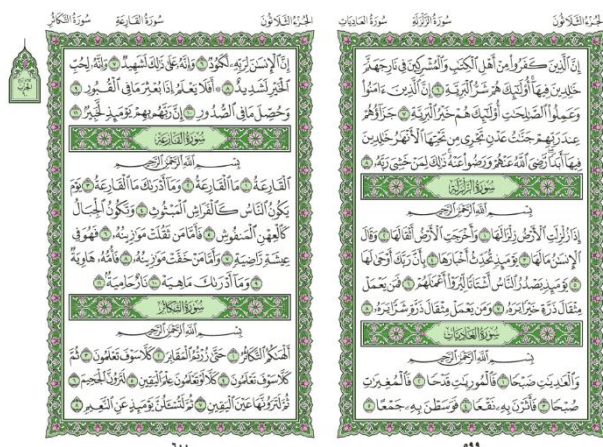 الجزء الثلاثون سورة الزلزلة سورة العاديات
إن الذين كفروا من أهل الكتب والمشركين في نار جهنم
خلدين فيها أولئك هم شر البرية ٦ إن الذين ءامنوا
وعملوا الصلحت أولئك هم خير البرية ٧ جزاؤهم
عند ربهم جنت عدن تجري من تحتها الأنهر خلدين
فيها أبدا رضي الله عنهم ورضوا عنه ذلك لمن خشي ربه ٨
سورة الزلزلة
بسم الله الرحمن الرحيم
إذا زلزلت الأرض زلزالها ١ وأخرجت الأرض أثقالها ٢ وقال
الإنسن ما لها ٣ يومئذ تحدث أخبارها ٤ بأن ربك أوحى لها
٥ يومئذ يصدر الناس أشتاتا ليروا أعملهم ٦ فمن يعمل
مثقال ذرة خيرا يره ٧ ومن يعمل مثقال ذرة شرا يره ٨
سورة العاديات
بسم الله الرحمن الرحيم
والعديت ضبحا ١ فالموريت قدحا ٢ فالمغيرت
صبحا ٣ فأثرن به نقعا ٤ فوسطن به جمعا ٥
٥٩٩
الجزء الثلاثون سورة القارعة سورة التكاثر
إن الإنسن لربه لكنود ٦ وإنه على ذلك لشهيد ٧ وإنه لحب
الخير لشديد ٨ أفلا يعلم إذا بعثر ما في القبور ٩
وحصل ما في الصدور ١٠ إن ربهم بهم يومئذ لخبير ١١
سورة القارعة
بسم الله الرحمن الرحيم
القارعة ١ ما القارعة ٢ وما أدرىك ما القارعة ٣ يوم
يكون الناس كالفراش المبثوث ٤ وتكون الجبال
كالعهن المنفوش ٥ فأما من ثقلت موزينه ٦ فهو في
عيشة راضية ٧ وأما من خفت موزينه ٨ فأمه هاوية
٩ وما أدرىك ما هيه ١٠ نار حامية ١١
سورة التكاثر
بسم الله الرحمن الرحيم
ألهىكم التكاثر ١ حتى زرتم المقابر ٢ كلا سوف تعلمون ٣ ثم
كلا سوف تعلمون ٤ كلا لو تعلمون علم اليقين ٥ لترون الجحيم ٦
ثم لترونها عين اليقين ٧ ثم لتسئلن يومئذ عن النعيم ٨
٦٠٠